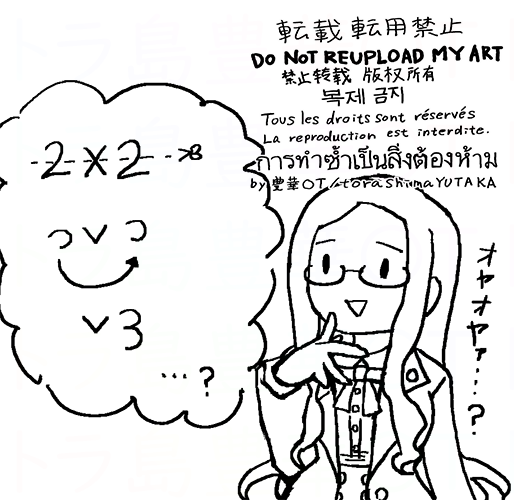 転載 転用禁止
DO NOT REUPLOAD MY ART
禁止转载 版权所有
복제 금지
Tous les droits sont réservés
La reproduction est interdite.
การทำซ้ำเป็นสิ่งต้องห้าม
by 豊華OT/torashimaYUTAKA
2×2
っ∨つ
∨3
…?
オヤオヤァ…?